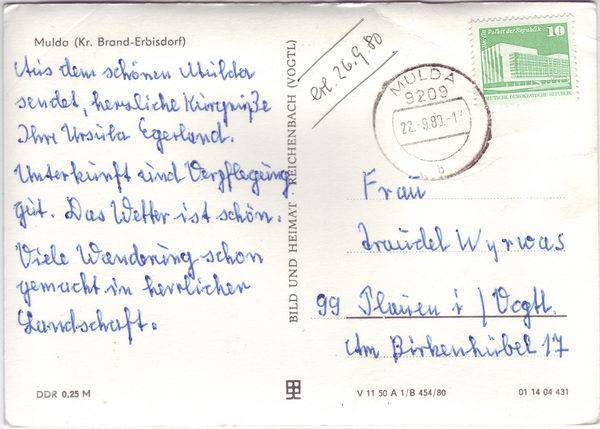 Mulda (Kr. Brand-Erbisdorf)
Aus dem schönen Mulda
sendet, herzliche Kurgrüße
Ihre Ursula Egerland.
Unterkunft und Verpflegung
gut. Das Wetter ist schön.
Viele Wanderung schon
gemacht in herrlicher
Landschaft.
DDR 0,25 M
BILD UND HEIMAT · REICHENBACH (VOGTL)
erl. 26.9.80
MULDA
9209
22.-9.80.-17
b
Berlin Palast der Republik
10
DEUTSCHE DEMOKRATISCHE REPUBLIK
Frau
Traudel Wyrwas
99 Plauen i/Vogtl.
Am Birkenhübel 17
V 11 50 A 1/B 454/80
01 14 04 431